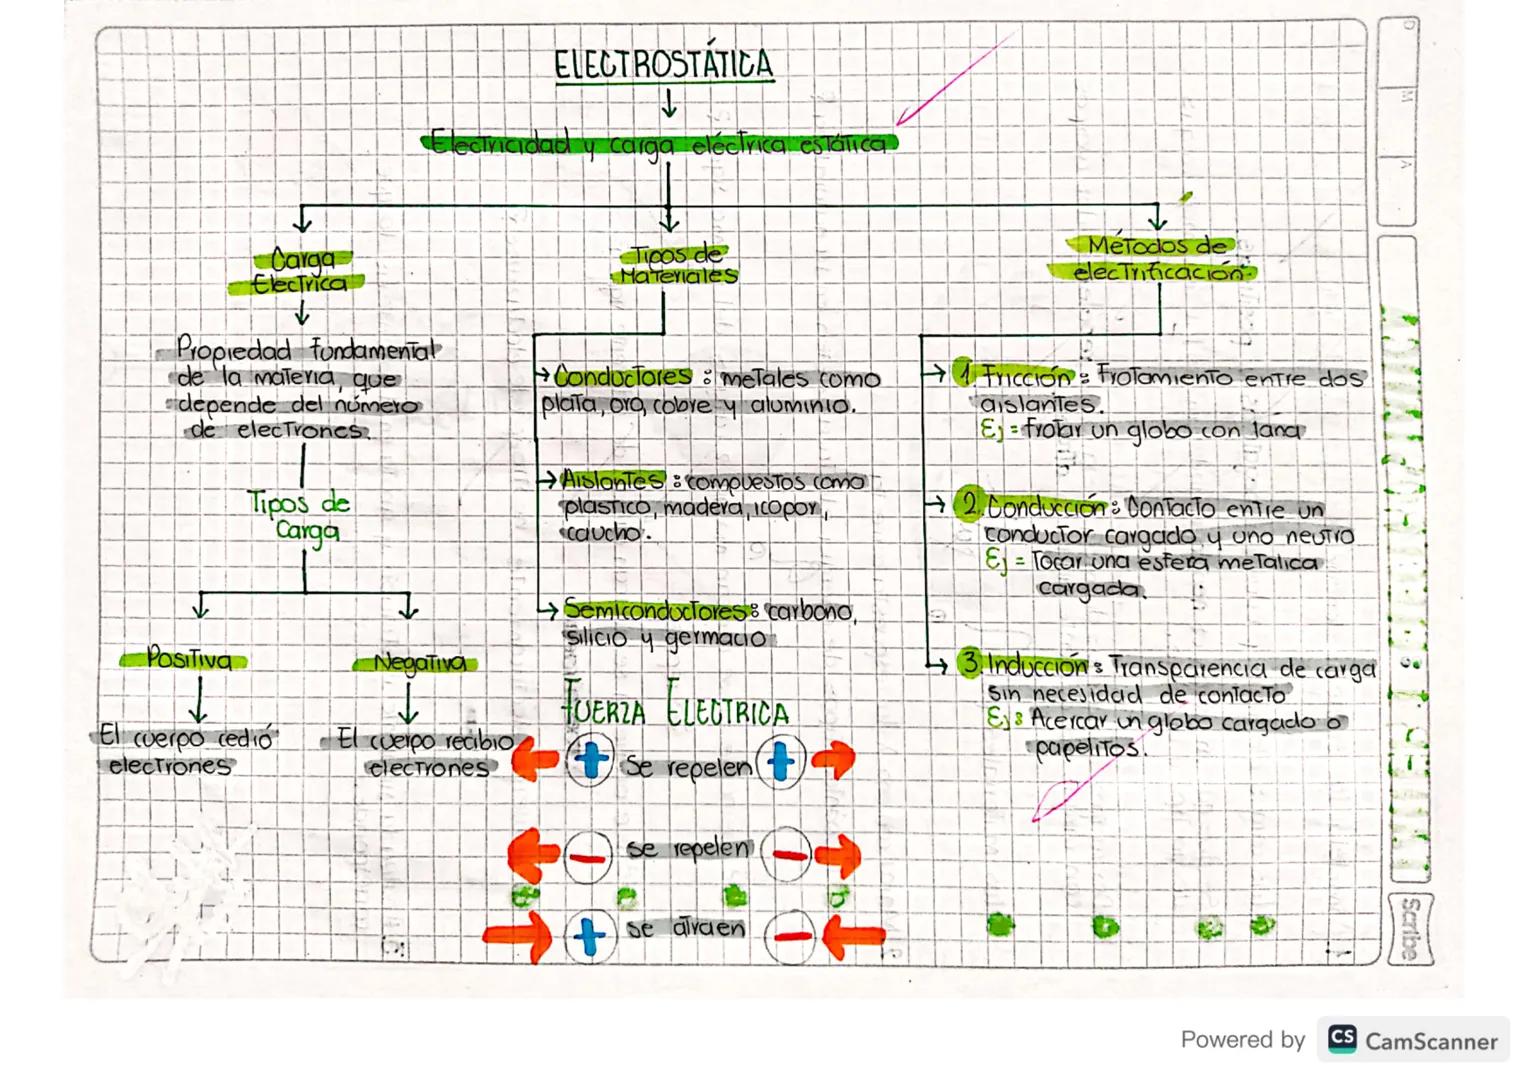 ELECTROSTÁTICA
Electricidad y carga eléctrica estática
Carga
Electrica
Propiedad fundamental
de la materia, que
depende del número
de electrones.
Tipos de
Carga
Positiva
El cuerpo cedió
electrones
Negativa
El cuerpo recibio
electrones
Tipos de
Materiales
Conductores: metales como
plata, oro, cobre y aluminio.
Aislantes: compuestos como
plastico, madera, icopor,
caucho.
Semiconductores: carbono,
silicio y germacio
FUERZA ELECTRICA
+ Se repelen +
- se repelen -
+ se atraen -
Métodos de
electrificación
1 Fricción: Frotamiento entre dos
aislantes.
Ej = frotar un globo con lana
2. Conducción: Contacto entre un
conductor cargado y uno neutro
Ej = Tocar una esfera metalica
cargada.
3. Inducción: Transparencia de carga
sin necesidad de contacto
Ej: Acercar un globo cargado o
papelitos.
D
M
A
Scribe
Powered by CS CamScanner